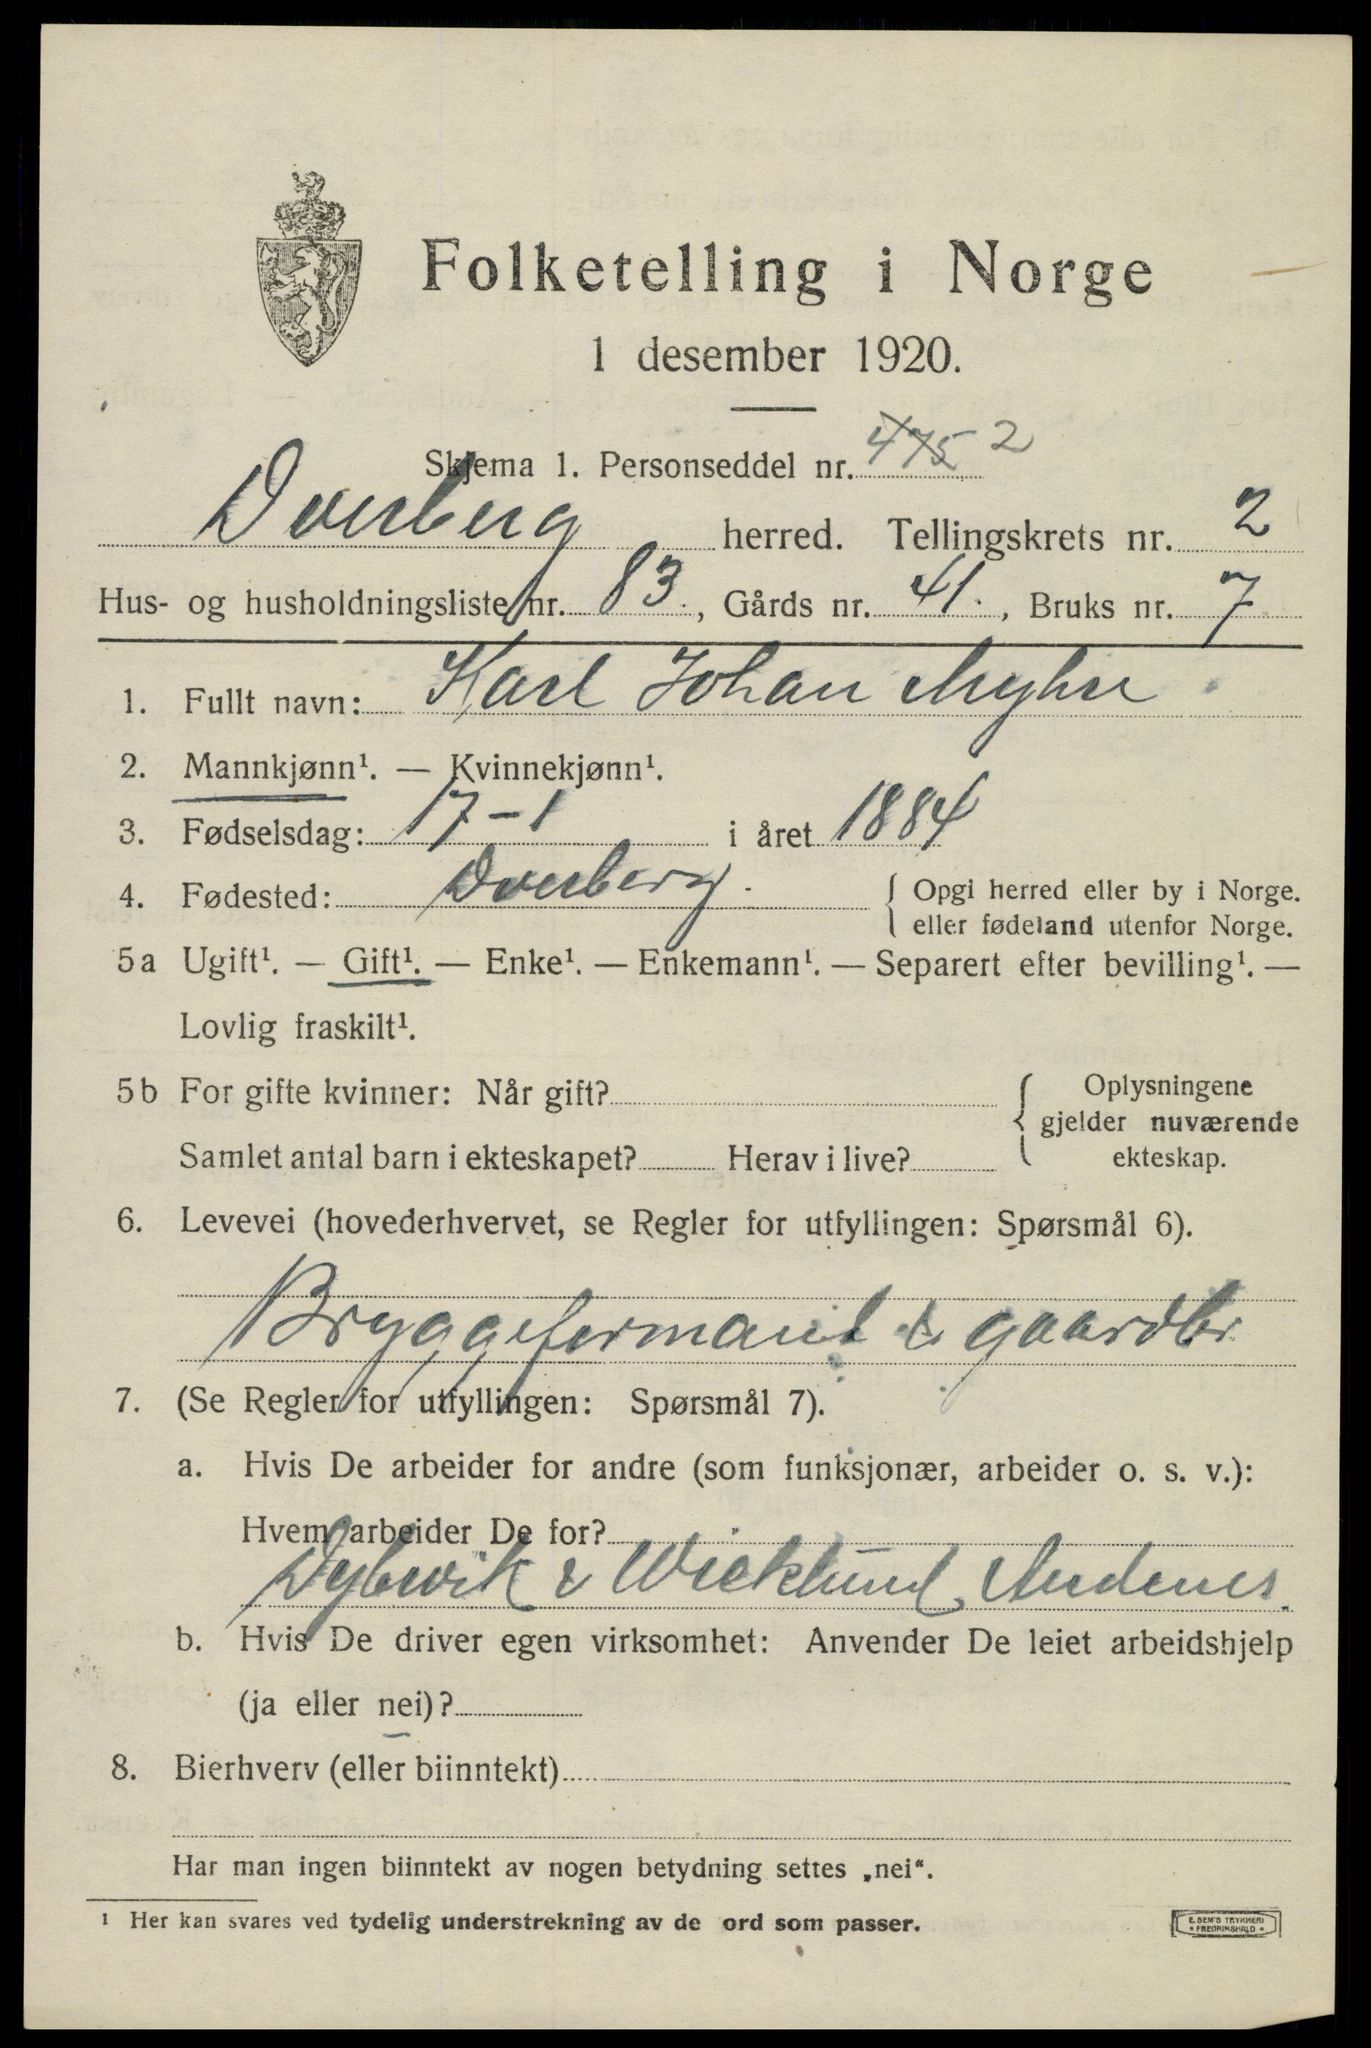 Folketelling i Norge
1 desember 1920.
Skjema 1. Personseddel nr. 475 2
Dverberg herred. Tellingskrets nr. 2
Hus- og husholdningsliste nr. 83., Gårds nr. 41., Bruks nr. 7
1. Fullt navn: Karl Johan Myhre
2. Mannkjønn¹. — Kvinnekjønn¹.
3. Fødselsdag: 17-1 i året 1884
4. Fødested: Dverberg. { Opgi herred eller by i Norge.
eller fødeland utenfor Norge.
5a Ugift¹. — Gift¹. — Enke¹. — Enkemann¹. — Separert efter bevilling¹. —
Lovlig fraskilt¹.
5b For gifte kvinner: Når gift? { Oplysningene
gjelder nuværende
Samlet antal barn i ekteskapet? Herav i live? ekteskap.
6. Levevei (hovederhvervet, se Regler for utfyllingen: Spørsmål 6).
Bryggeformand & gaardbr.
7. (Se Regler for utfyllingen: Spørsmål 7).
a. Hvis De arbeider for andre (som funksjonær, arbeider o. s. v.):
Hvem arbeider De for?
Dybwik & Wicklund, Andenes.
b. Hvis De driver egen virksomhet: Anvender De leiet arbeidshjelp
(ja eller nei)?
8. Bierhverv (eller biinntekt)
Har man ingen biinntekt av nogen betydning settes „nei“.
¹ Her kan svares ved tydelig understrekning av de ord som passer.
E. SEM'S TRYKKERI
• FREDRIKSHALD •